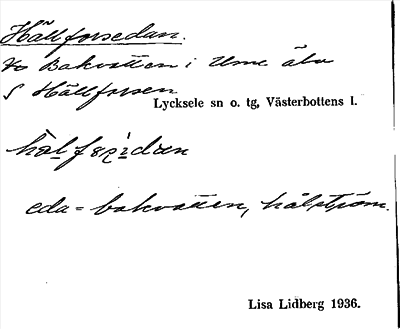 Hällforsedan.
Vo Bakvatten i Ume älv
S Hällforsen
Lycksele sn o. tg, Västerbottens l.
eda = bakvatten, hålström.
Lisa Lidberg 1936.